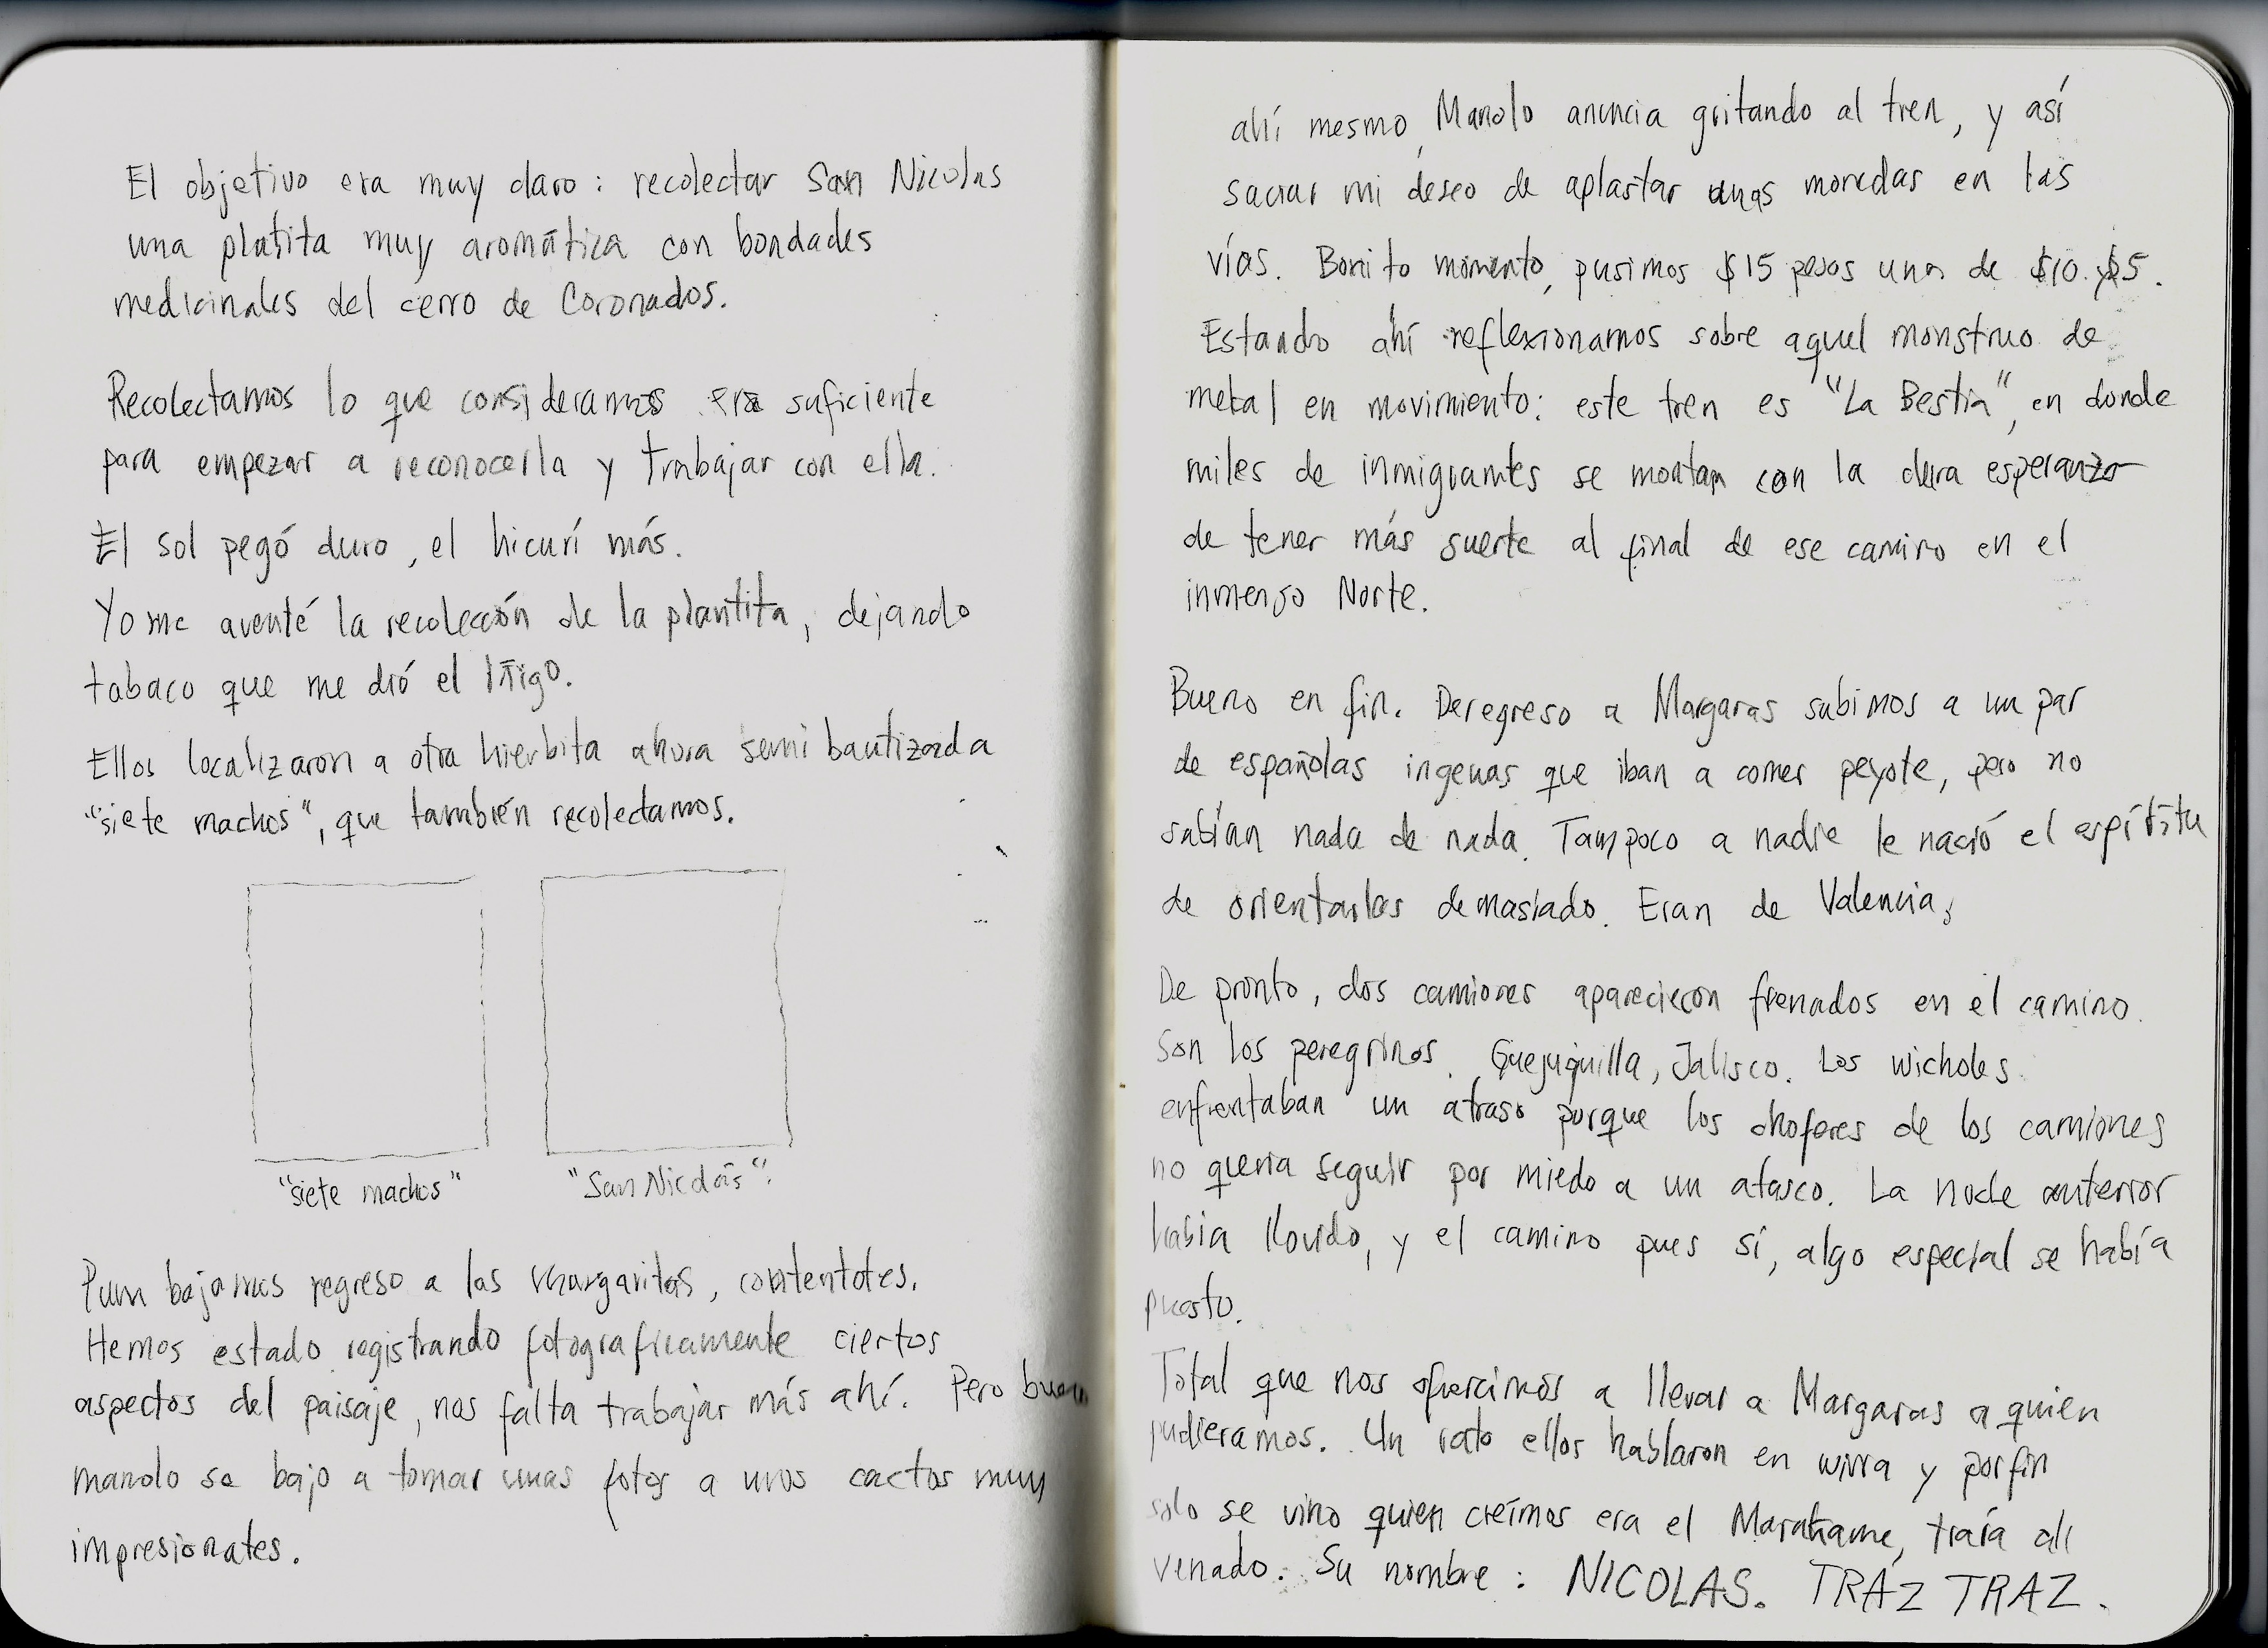 El objetivo era muy claro: recolectar San Nicolas
una platita muy aromática con bondades
medicinales del cerro de Coronados.
Recolectamos lo que consideramos era suficiente
para empezar a reconocerla y trabajar con ella.
El sol pegó duro, el hicurí más.
Yo me aventé la recolección de la plantita, dejando
tabaco que me dió el Iñigo.
Ellos localizaron a otra hierbita ahora semi bautizada
"siete machos", que también recolectamos.
"siete machos" "San Nicolás".
Pum bajamos regreso a las margaritas, contentotes.
Hemos estado registrando fotograficamente ciertos
aspectos del paisaje, nos falta trabajar más ahí. Pero bueno
manolo se bajo a tomar unas fotos a unos cactos muy
impresionates.
ahí mesmo, Manolo anuncia gritando al tren, y así
saciar mi deseo de aplastar unas monedas en las
vías. Bonito momento, pusimos $15 pesos una de $10 y $5.
Estando ahí reflexionamos sobre aquel monstruo de
metal en movimiento: este tren es "La Bestia", en donde
miles de inmigrantes se montan con la dura esperanza
de tener más suerte al final de ese camino en el
inmenso Norte.
Bueno en fin. De regreso a Margaras subimos a un par
de españolas ingenuas que iban a comer peyote, pero no
sabían nada de nada. Tampoco a nadie le nació el espíritu
de orientarlas demasiado. Eran de Valencia.
De pronto, dos camiones aparecieron frenados en el camino.
Son los peregrinos. Quejuquilla, Jalisco. Los wicholes
enfrentaban un atraso porque los choferes de los camiones
no queria seguir por miedo a un atasco. La noche anterior
habia llovido, y el camino pues sí, algo especial se había
puesto.
Total que nos ofrecimos a llevar a Margaras a quien
pudieramos. Un rato ellos hablaron en wirra y porfin
solo se vino quien creímos era el Marakame, traía al
venado. Su nombre: NICOLAS. TRAZ TRAZ.